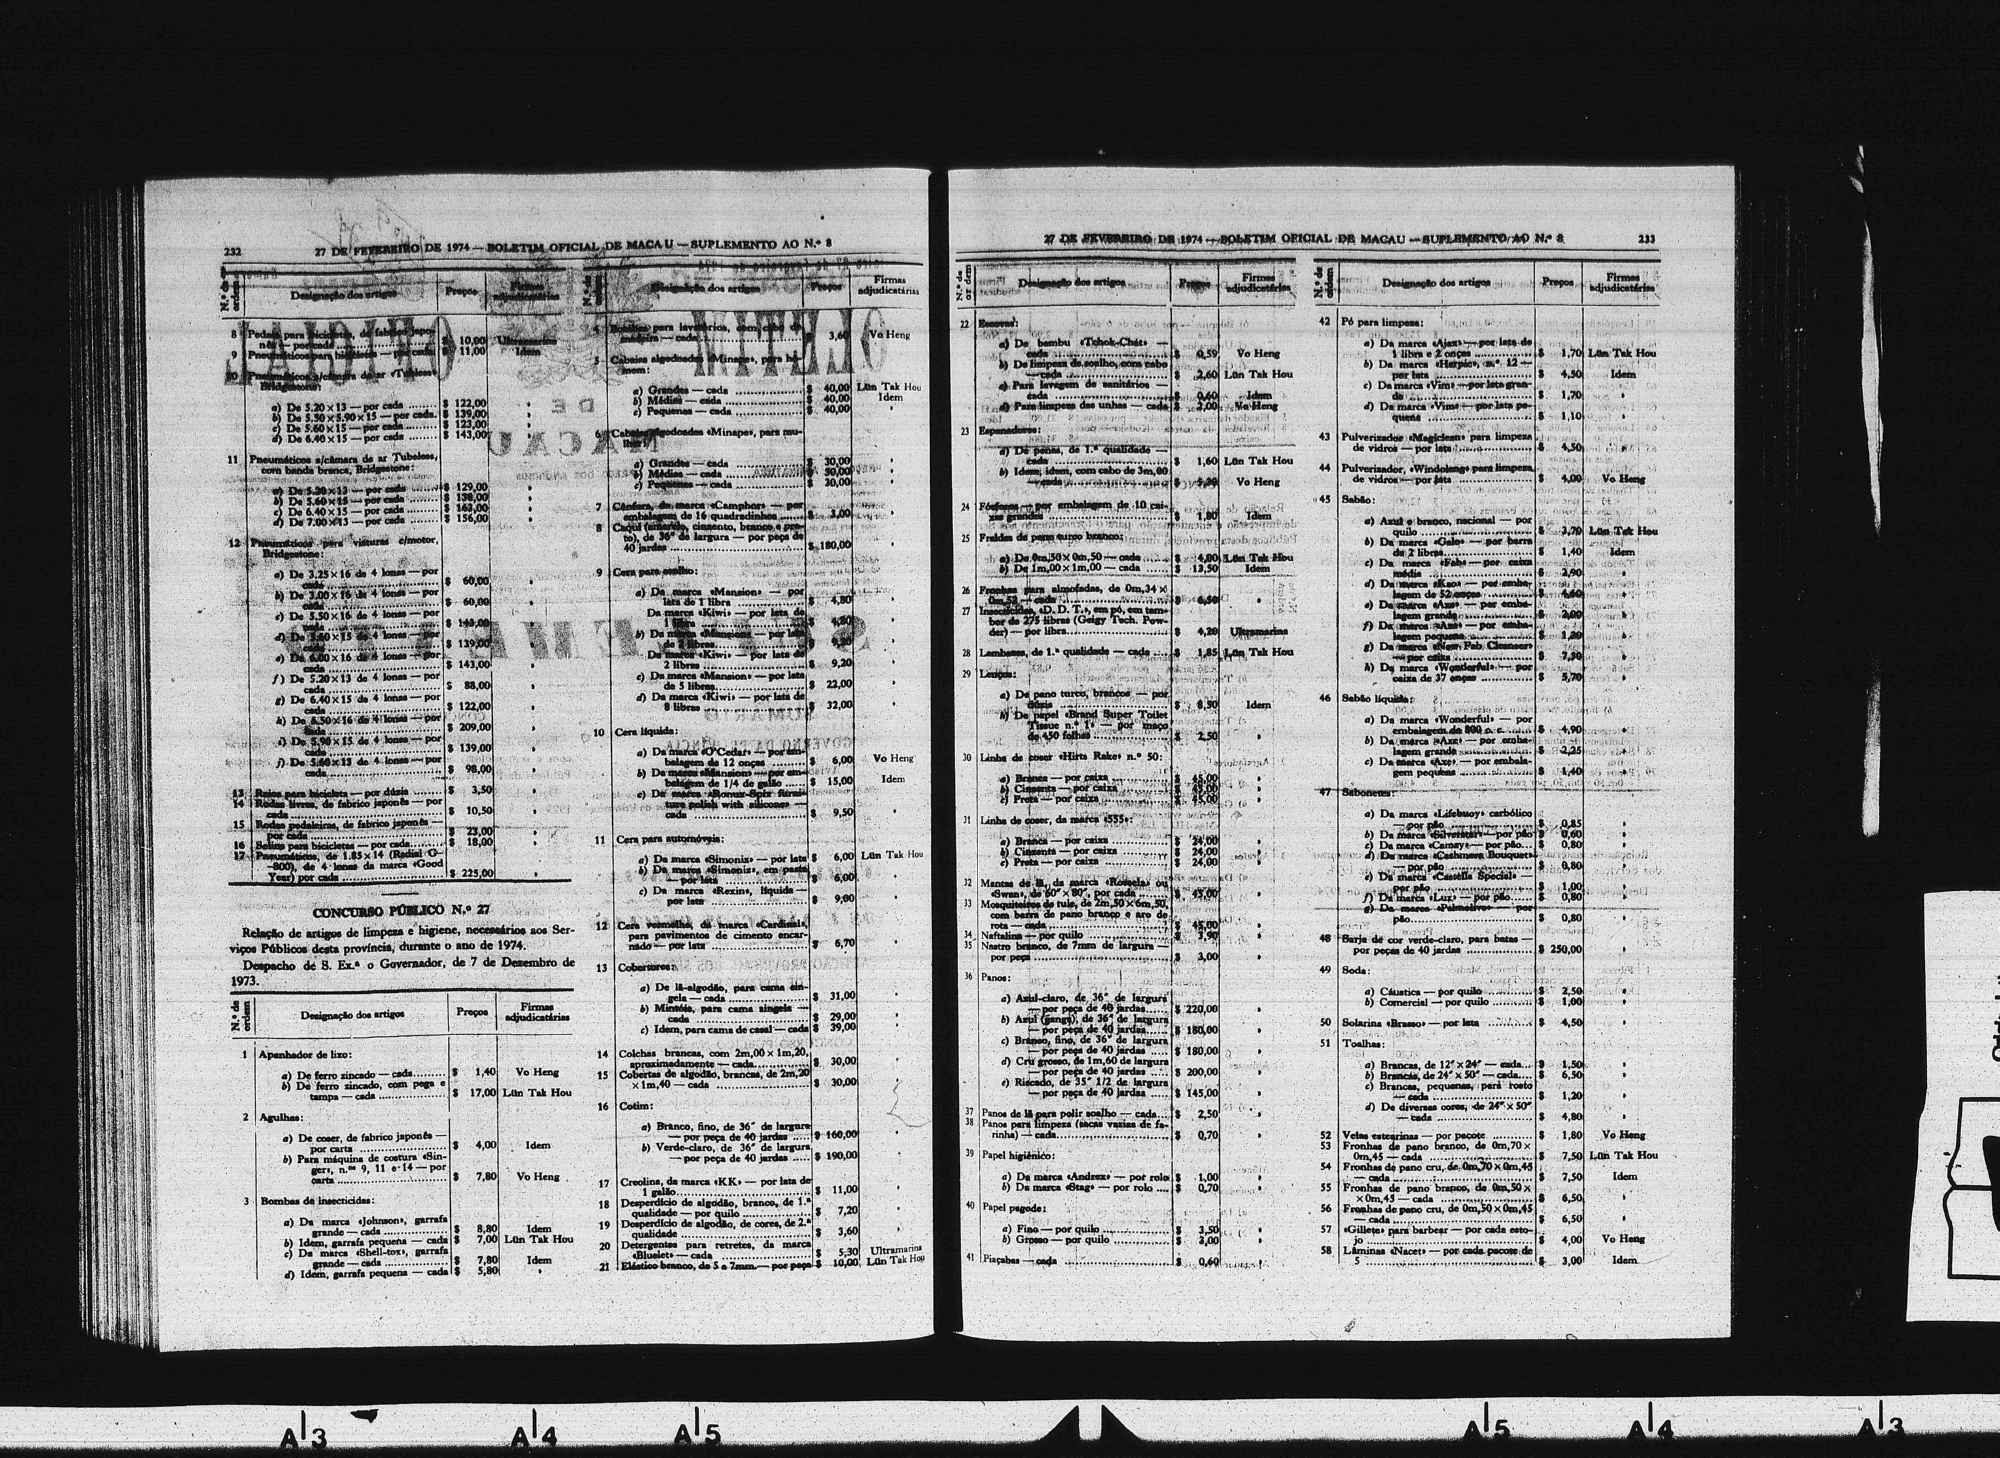 232
27 DE FEVEREIRO DE 1974 — BOLETIM OFICIAL DE MACAU — SUPLEMENTO AO N.º 8
N.º de ordem
Designação dos artigos
Preços
Firmas adjudicatárias
8 Pedais para bicicletas, de fabrico japo-
nês — por cada $ 10,00 Ultramarina
9 Pneumáticos para bicicletas — por cada $ 11,00 Idem
10 Pneumáticos s/câmara de ar «Tubeless»
Bridgestone:
a) De 5.20×13 — por cada $ 122,00 »
b) De 5.50×5.90×15 — por cada $ 139,00 »
c) De 5.60×15 — por cada $ 123,00 »
d) De 6.40×15 — por cada $ 143,00 »
11 Pneumáticos s/câmara de ar Tubeless,
com banda branca, Bridgestone:
a) De 5.20×13 — por cada $ 129,00 »
b) De 5.60×15 — por cada $ 138,00 »
c) De 6.40×15 — por cada $ 162,00 »
d) De 7.00×13 — por cada $ 156,00 »
12 Pneumáticos para viaturas c/motor,
Bridgestone:
a) De 3.25×16 de 4 lonas — por
cada $ 60,00 »
b) De 3.00×16 de 4 lonas — por
cada $ 60,00 »
c) De 5.50×16 de 4 lonas — por
cada $ 143,00 »
d) De 5.60×15 de 4 lonas — por
cada $ 139,00 »
e) De 6.00×16 de 4 lonas — por
cada $ 143,00 »
f) De 5.20×13 de 4 lonas — por
cada $ 88,00 »
g) De 6.40×15 de 4 lonas — por
cada $ 122,00 »
h) De 6.50×16 de 4 lonas — por
cada $ 209,00 »
i) De 5.90×15 de 4 lonas — por
cada $ 139,00 »
j) De 5.60×13 de 4 lonas — por
cada $ 98,00 »
13 Raios para bicicleta — por dúzia $ 3,50 »
14 Rodas livres, de fabrico japonês — por
cada $ 10,50 »
15 Rodas pedaleiras, de fabrico japonês —
por cada $ 23,00 »
16 Selins para bicicletas — por cada $ 18,00 »
17 Pneumáticos, de 1.85×14 (Radial G-
-800), de 4 lonas da marca «Good
Year» por cada $ 225,00 »
CONCURSO PÚBLICO N.º 27
Relação de artigos de limpeza e higiene, necessários aos Ser-
viços Públicos desta província, durante o ano de 1974.
Despacho de S. Ex.ª o Governador, de 7 de Dezembro de
1973.
N.º de ordem
Designação dos artigos
Preços
Firmas adjudicatárias
1 Apanhador de lixo:
a) De ferro zincado — cada $ 1,40 Vo Heng
b) De ferro zincado, com pega e
tampa — cada $ 17,00 Lün Tak Hou
2 Agulhas:
a) De coser, de fabrico japonês —
por carta $ 4,00 Idem
b) Para máquina de costura «Sin-
ger», n.ºs 9, 11 e 14 — por
carta $ 7,80 Vo Heng
3 Bombas de insecticidas:
a) Da marca «Johnson», garrafa
grande — cada $ 8,80 Idem
b) Idem, garrafa pequena — cada $ 7,00 Lün Tak Hou
c) Da marca «Shell-tox», garrafa
grande — cada $ 7,80 Idem
d) Idem, garrafa pequena — cada $ 5,80 »
N.º de ordem
Designação dos artigos
Preços
Firmas adjudicatárias
4 para lavatórios, com cabo de
madeira — cada $ 3,60 Vo Heng
5 Cabaias algodoadas «Minape», para ho-
mem:
a) Grandes — cada $ 40,00 Lün Tak Hou
b) Médias — cada $ 40,00 Idem
c) Pequenas — cada $ 40,00 »
6 Cabaias algodoadas «Minape», para mu-
lher:
a) Grandes — cada $ 30,00 »
b) Médias — cada $ 30,00 »
c) Pequenas — cada $ 30,00 »
7 Cânfora, da marca «Camphor» — por
embalagem de 16 quadradinhos $ 3,00 »
8 Caqui (amarelo, cinzento, branco e pre-
to), de 36″ de largura — por peça de
40 jardas $ 180,00 »
9 Cera para soalho:
a) Da marca «Mansion» — por
lata de 1 libra $ 4,80 »
Da marca «Kiwi» — por lata de
1 libra $ 4,80 »
b) Da marca «Mansion» — por lata
de 2 libras $ 9,20 »
Da marca «Kiwi» — por lata de
2 libras $ 9,20 »
c) Da marca «Mansion» — por lata
de 5 libras $ 22,00 »
d) Da marca «Kiwi» — por lata de
8 libras $ 32,00 »
10 Cera líquida:
a) Da marca «O'Cedar» — por em-
balagem de 12 onças $ 6,00 Vo Heng
b) Da marca «Mansion» — por em-
balagem de 1/4 de galão $ 15,00 Idem
c) De marca «Ronuz-Spix furni-
ture polish with silicone» —
cada $ 9,50 »
11 Cera para automóveis:
a) Da marca «Simoniz» — por lata $ 6,00 Lün Tak Hou
b) Da marca «Simoniz», em pasta
— por lata $ 6,00 »
c) Da marca «Rexin», líquida —
por lata $ 9,00 »
12 Cera vermelha, da marca «Cardinal»,
para pavimentos de cimento encar-
nado — por lata $ 6,70 »
13 Cobertores:
a) De lã-algodão, para cama sin-
gela — cada $ 31,00 »
b) Mistos, para cama singela —
cada $ 29,00 »
c) Idem, para cama de casal — cada $ 39,00 »
14 Colchas brancas, com 2m,00×1m,20,
aproximadamente — cada $ 30,00 »
15 Cobertas de algodão, brancas, de 2m,20
×1m,40 — cada $ 30,00 »
16 Cotim:
a) Branco, fino, de 36″ de largura
— por peça de 40 jardas $ 160,00 »
b) Verde-claro, de 36″ de largura
— por peça de 40 jardas $ 190,00 »
17 Creolina, da marca «KK» — por lata de
1 galão $ 11,00 »
18 Desperdício de algodão, branco, de 1.ª
qualidade — por quilo $ 7,20 »
19 Desperdício de algodão, de cores, de 2.ª
qualidade $ 3,60 »
20 Detergentes para retretes, da marca
«Bluelet» — cada $ 5,30 Ultramarina
21 Elástico branco, de 5 a 7mm — por peça $ 10,00 Lün Tak Hou
27 DE FEVEREIRO DE 1974 — BOLETIM OFICIAL DE MACAU — SUPLEMENTO AO N.º 8
233
N.º de ordem
Designação dos artigos
Preços
Firmas adjudicatárias
22 Escovas:
a) De bambu «Tchok-Chát» —
cada $ 0,59 Vo Heng
b) De limpeza de soalho, com cabo
— cada $ 2,60 Lün Tak Hou
c) Para lavagem de sanitários —
cada $ 0,60 Idem
d) Para limpeza das unhas — cada $ 2,00 Vo Heng
23 Espanadores:
a) De penas, de 1.ª qualidade —
cada $ 1,60 Lün Tak Hou
b) Idem, idem, com cabo de 3m,00
— cada $ 5,20 Vo Heng
24 Fósforos — por embalagem de 10 cai-
xas grandes $ 1,80 Idem
25 Fraldas de pano turco branco:
a) De 0m,50×0m,50 — cada $ 4,00 Lün Tak Hou
b) De 1m,00×1m,00 — cada $ 13,50 Idem
26 Fronhas para almofadas, de 0m,34×
0m,52 — cada $ 6,50 »
27 Insecticidas, «D. D. T.», em pó, em tam-
bor de 275 libras (Geigy Tech. Pow-
der) — por libra $ 4,20 Ultramarina
28 Lambazes, de 1.ª qualidade — cada $ 1,85 Lün Tak Hou
29 Lenços:
a) De pano turco, brancos — por
dúzia $ 8,50 Idem
b) De papel «Brand Super Toilet
Tissue n.º 1» — por maço
de 450 folhas $ 2,50 »
30 Linha de coser «Hirts Rake» n.º 50:
a) Branca — por caixa $ 45,00 »
b) Cinzenta — por caixa $ 45,00 »
c) Preta — por caixa $ 45,00 »
31 Linha de coser, da marca «555»:
a) Branca — por caixa $ 24,00 »
b) Cinzenta — por caixa $ 24,00 »
c) Preta — por caixa $ 24,00 »
32 Mantas de lã, da marca «Rossela» ou
«Swan», de 60″×80″, por cada $ 45,00 »
33 Mosquiteiros de tule, de 2m,50×6m,50,
com barra de pano branco e aro de
rota — cada $ 45,00 »
34 Naftalina — por quilo $ 3,90 »
35 Nastro branco, de 7mm de largura —
por peça $ 3,00 »
36 Panos:
a) Azul-claro, de 36″ de largura
— por peça de 40 jardas $ 220,00 »
b) Azul (ganga), de 36″ de largura
— por peça de 40 jardas $ 180,00 »
c) Branco, fino, de 36″ de largura
— por peça de 40 jardas $ 180,00 »
d) Cru grosso, de 1m,60 de largura
— por peça de 40 jardas $ 200,00 »
e) Riscado, de 35″ 1/2 de largura
— por peça de 40 jardas $ 145,00 »
37 Panos de lã para polir soalho — cada $ 2,50 »
38 Panos para limpeza (sacas vazias de fa-
rinha) — cada $ 0,70 »
39 Papel higiénico:
a) Da marca «Andrex» — por rolo $ 1,00 »
b) Da marca «Stag» — por rolo $ 0,70 »
40 Papel pagode:
a) Fino — por quilo $ 3,50 »
b) Grosso — por quilo $ 3,00 »
41 Piaçabas — cada $ 0,60 »
N.º de ordem
Designação dos artigos
Preços
Firmas adjudicatárias
42 Pó para limpeza:
a) Da marca «Ajax» — por lata de
1 libra e 2 onças $ 1,70 Lün Tak Hou
b) Da marca «Harpic», n.º 12 —
por lata $ 4,50 Idem
c) Da marca «Vim» — por lata gran-
de $ 1,70 »
d) Da marca «Vim» — por lata pe-
quena $ 1,10 »
43 Pulverizador «Magiclean» para limpeza
de vidros — por lata $ 4,50 »
44 Pulverizador, «Windolene» para limpeza
de vidros — por lata $ 4,00 Vo Heng
45 Sabão:
a) Azul e branco, nacional — por
quilo $ 3,70 Lün Tak Hou
b) Da marca «Galo» — por barra
de 2 libras $ 1,40 Idem
c) Da marca «Fab» — por caixa
média $ 2,90 »
d) Da marca «Kao» — por emba-
lagem de 52 onças $ 4,60 »
e) Da marca «Axe» — por emba-
lagem grande $ 2,00 »
f) Da marca «Axe» — por emba-
lagem pequena $ 1,20 »
g) Da marca «New Fab Cleanser»
— por caixa $ 7,30 »
h) Da marca «Wonderful» — por
caixa de 37 onças $ 5,70 »
46 Sabão líquido:
a) Da marca «Wonderful» — por
embalagem de 800 c. c. $ 4,90 »
b) Da marca «Axe» — por emba-
lagem grande $ 2,25 »
c) Da marca «Axe» — por embala-
gem pequena $ 1,40 »
47 Sabonetes:
a) Da marca «Lifebuoy» carbólico
— por pão $ 0,85 »
b) Da marca «Silverstar» — por pão $ 0,60 »
c) Da marca «Camay» — por pão $ 0,80 »
d) Da marca «Cashmere Bouquet»
— por pão $ 0,80 »
e) Da marca «Castella Special» —
por pão $ 1,00 »
f) Da marca «Lux» — por pão $ 0,80 »
g) Da marca «Palmolive» — por
pão $ 0,80 »
48 Sarja de cor verde-claro, para batas —
por peças de 40 jardas $ 250,00 »
49 Soda:
a) Cáustica — por quilo $ 2,50 »
b) Comercial — por quilo $ 1,00 »
50 Solarina «Brasso» — por lata $ 4,50 »
51 Toalhas:
a) Brancas, de 12″×24″ — cada $ 1,50 »
b) Brancas, de 24″×50″ — cada $ 6,50 »
c) Brancas, pequenas, para rosto
— cada $ 1,20 »
d) De diversas cores, de 24″×50″
— cada $ 4,80 »
52 Velas estearinas — por pacote $ 1,80 Vo Heng
53 Fronhas de pano branco, de 0m,70×
0m,45 — cada $ 7,50 Lün Tak Hou
54 Fronhas de pano cru, de 0m,70×0m,45
— cada $ 7,50 Idem
55 Fronhas de pano branco, de 0m,50×
×0m,45 — cada $ 6,50 »
56 Fronhas de pano cru, de 0m,50×0m,45
— cada $ 6,50 »
57 «Gillete» para barbear — por cada esto-
jo $ 4,00 Vo Heng
58 Lâminas «Nacet» — por cada pacote de
5 $ 3,00 Idem
A3 A4 A5 A5 A4 A3